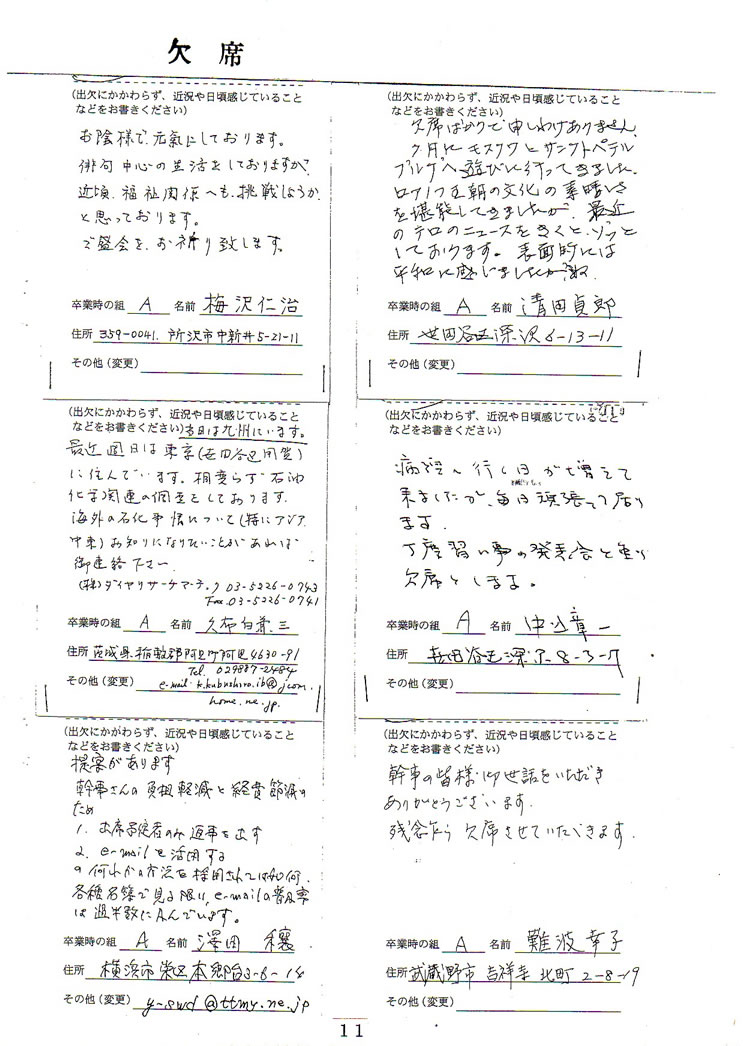 欠席
(出欠にかかわらず、近況や日頃感じていること
などをお書きください)
お陰様で、元気にしております。
俳句中心の生活をしておりますが、
近頃、福祉関係へも、挑戦しようか
と思っております。
ご盛会を、お祈り致します。
卒業時の組 A 名前 梅沢仁治
住所 359-0041. 所沢市中新井5-21-11
その他(変更)
(出欠にかかわらず、近況や日頃感じていること
などをお書きください)
欠席ばかりで申しわけありません。
7月にモスクワとサンクトペテル
ブルグへ遊びに行ってきました。
ロマノフ王朝の文化の素晴しさ
を堪能してきましたが、最近
のテロのニュースをきくと、ゾッと
しております。表面的には
平和に感じましたが
卒業時の組 A 名前 清田貞郎
住所 世田谷区深沢6-13-11
その他(変更)
(出欠にかかわらず、近況や日頃感じていること
などをお書きください) 当日は九州にいます。
最近週日は東京(世田谷区用賀)
に住んでいます。相変らず石油
化学関連の調査をしております。
海外の石化事情について(特にアジア、
中東)お知りになりたいことがあれば
御連絡下さい
(株)ダイヤリサーチマーテック 03-5226-0743
Fax.03-5226-0741
卒業時の組 A 名前 久布白兼三
住所 茨城県稲敷郡阿見町阿見4630-91
Tel. 029887-2484
その他(変更) e-mail: k.kubushiro.ib@jcom.
home.ne.jp.
(出欠にかかわらず、近況や日頃感じていること
などをお書きください)
病院へ行く日が増えて
来ましたが、毎日頑張って居り
ます.
丁度習い事の発表会と重り
欠席とします。
卒業時の組 A 名前 章一
住所 世田谷区深沢8-3-7
その他(変更)
(出欠にかかわらず、近況や日頃感じていること
などをお書きください)
提案があります
幹事さんの負担軽減と経費節減の
ため
1. 出席予定者のみ返事を出す
2. e-mailを活用する
の何れかの方法を採用されては如何.
各種名簿で見る限り、e-mailの普及率
は過半数に及んでいます。
卒業時の組 A 名前 澤田 穣
住所 横浜市栄区本郷台3-6-14
その他(変更) y-swd@ttmy.ne.jp
(出欠にかかわらず、近況や日頃感じていること
などをお書きください)
幹事の皆様、御世話をいただき
ありがとうございます.
残念乍ら欠席させていただきます.
卒業時の組 A 名前 難波幸子
住所 武蔵野市吉祥寺北町2-8-19
その他(変更)
11